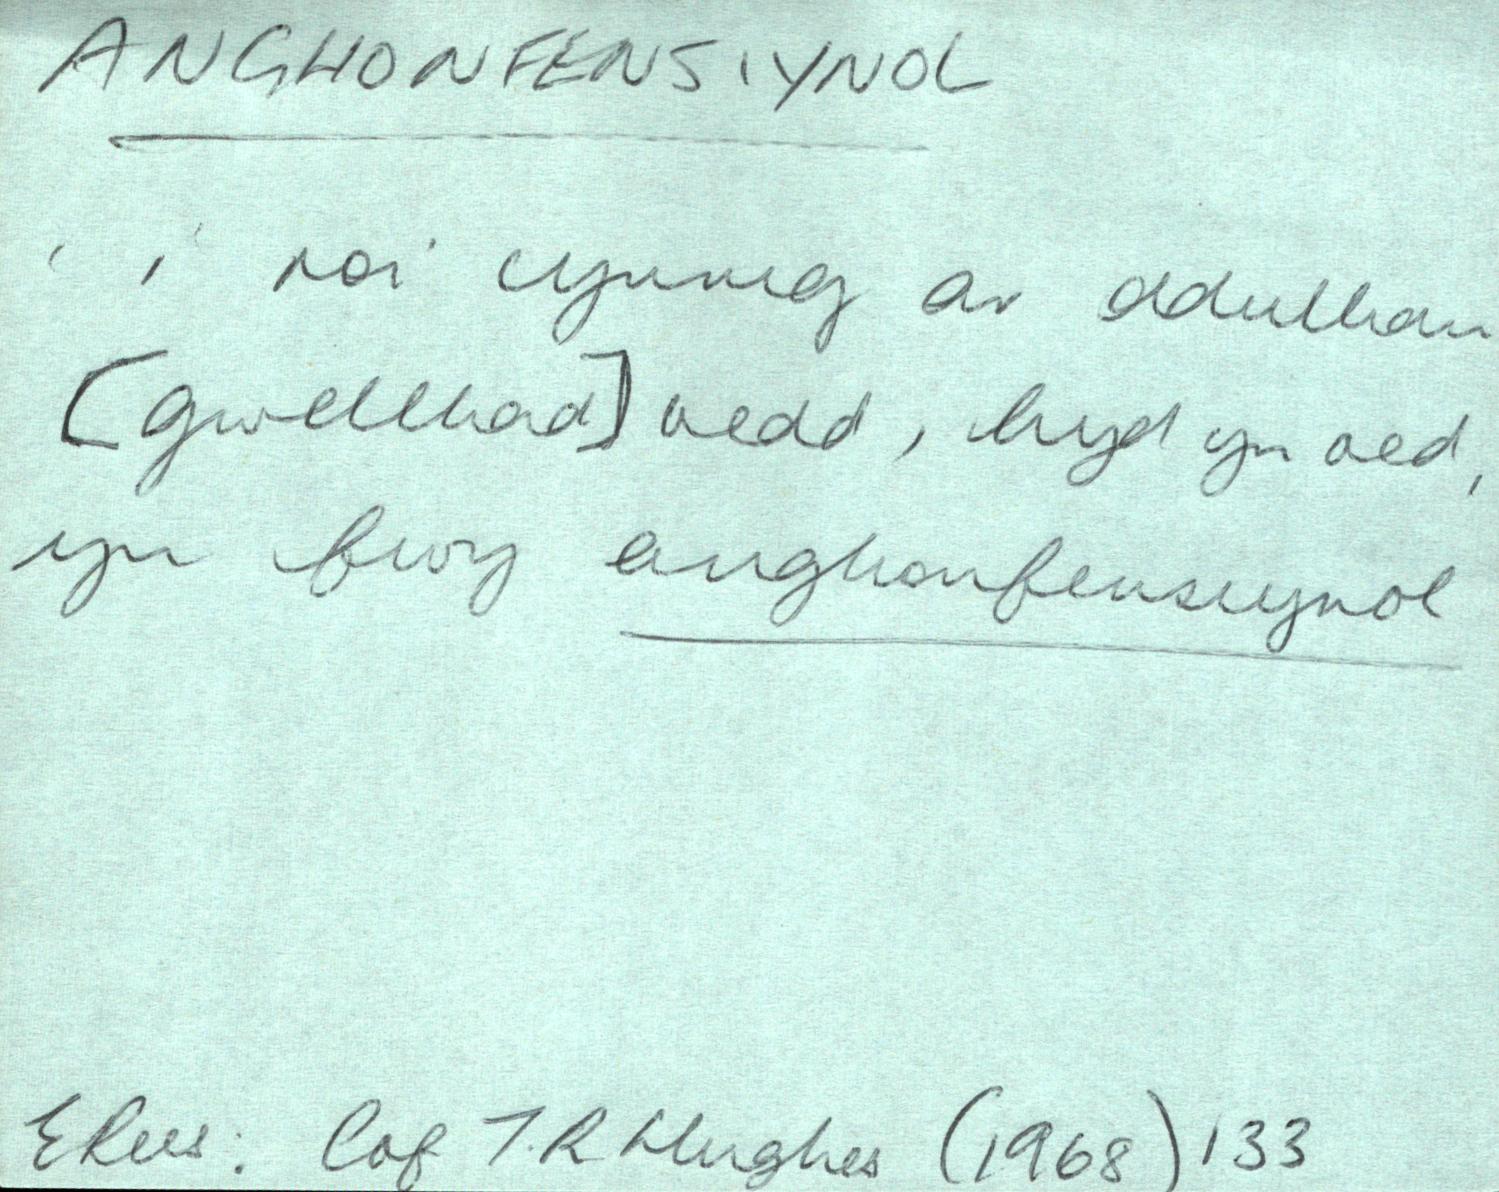 ANGHONFENSIYNOL
' i roi cynnig ar ddulliau
[gwellhad] oedd, hyd yn oed,
yn fwy anghonfensiynol
E Rees: Cof T. R Hughes (1968) 133